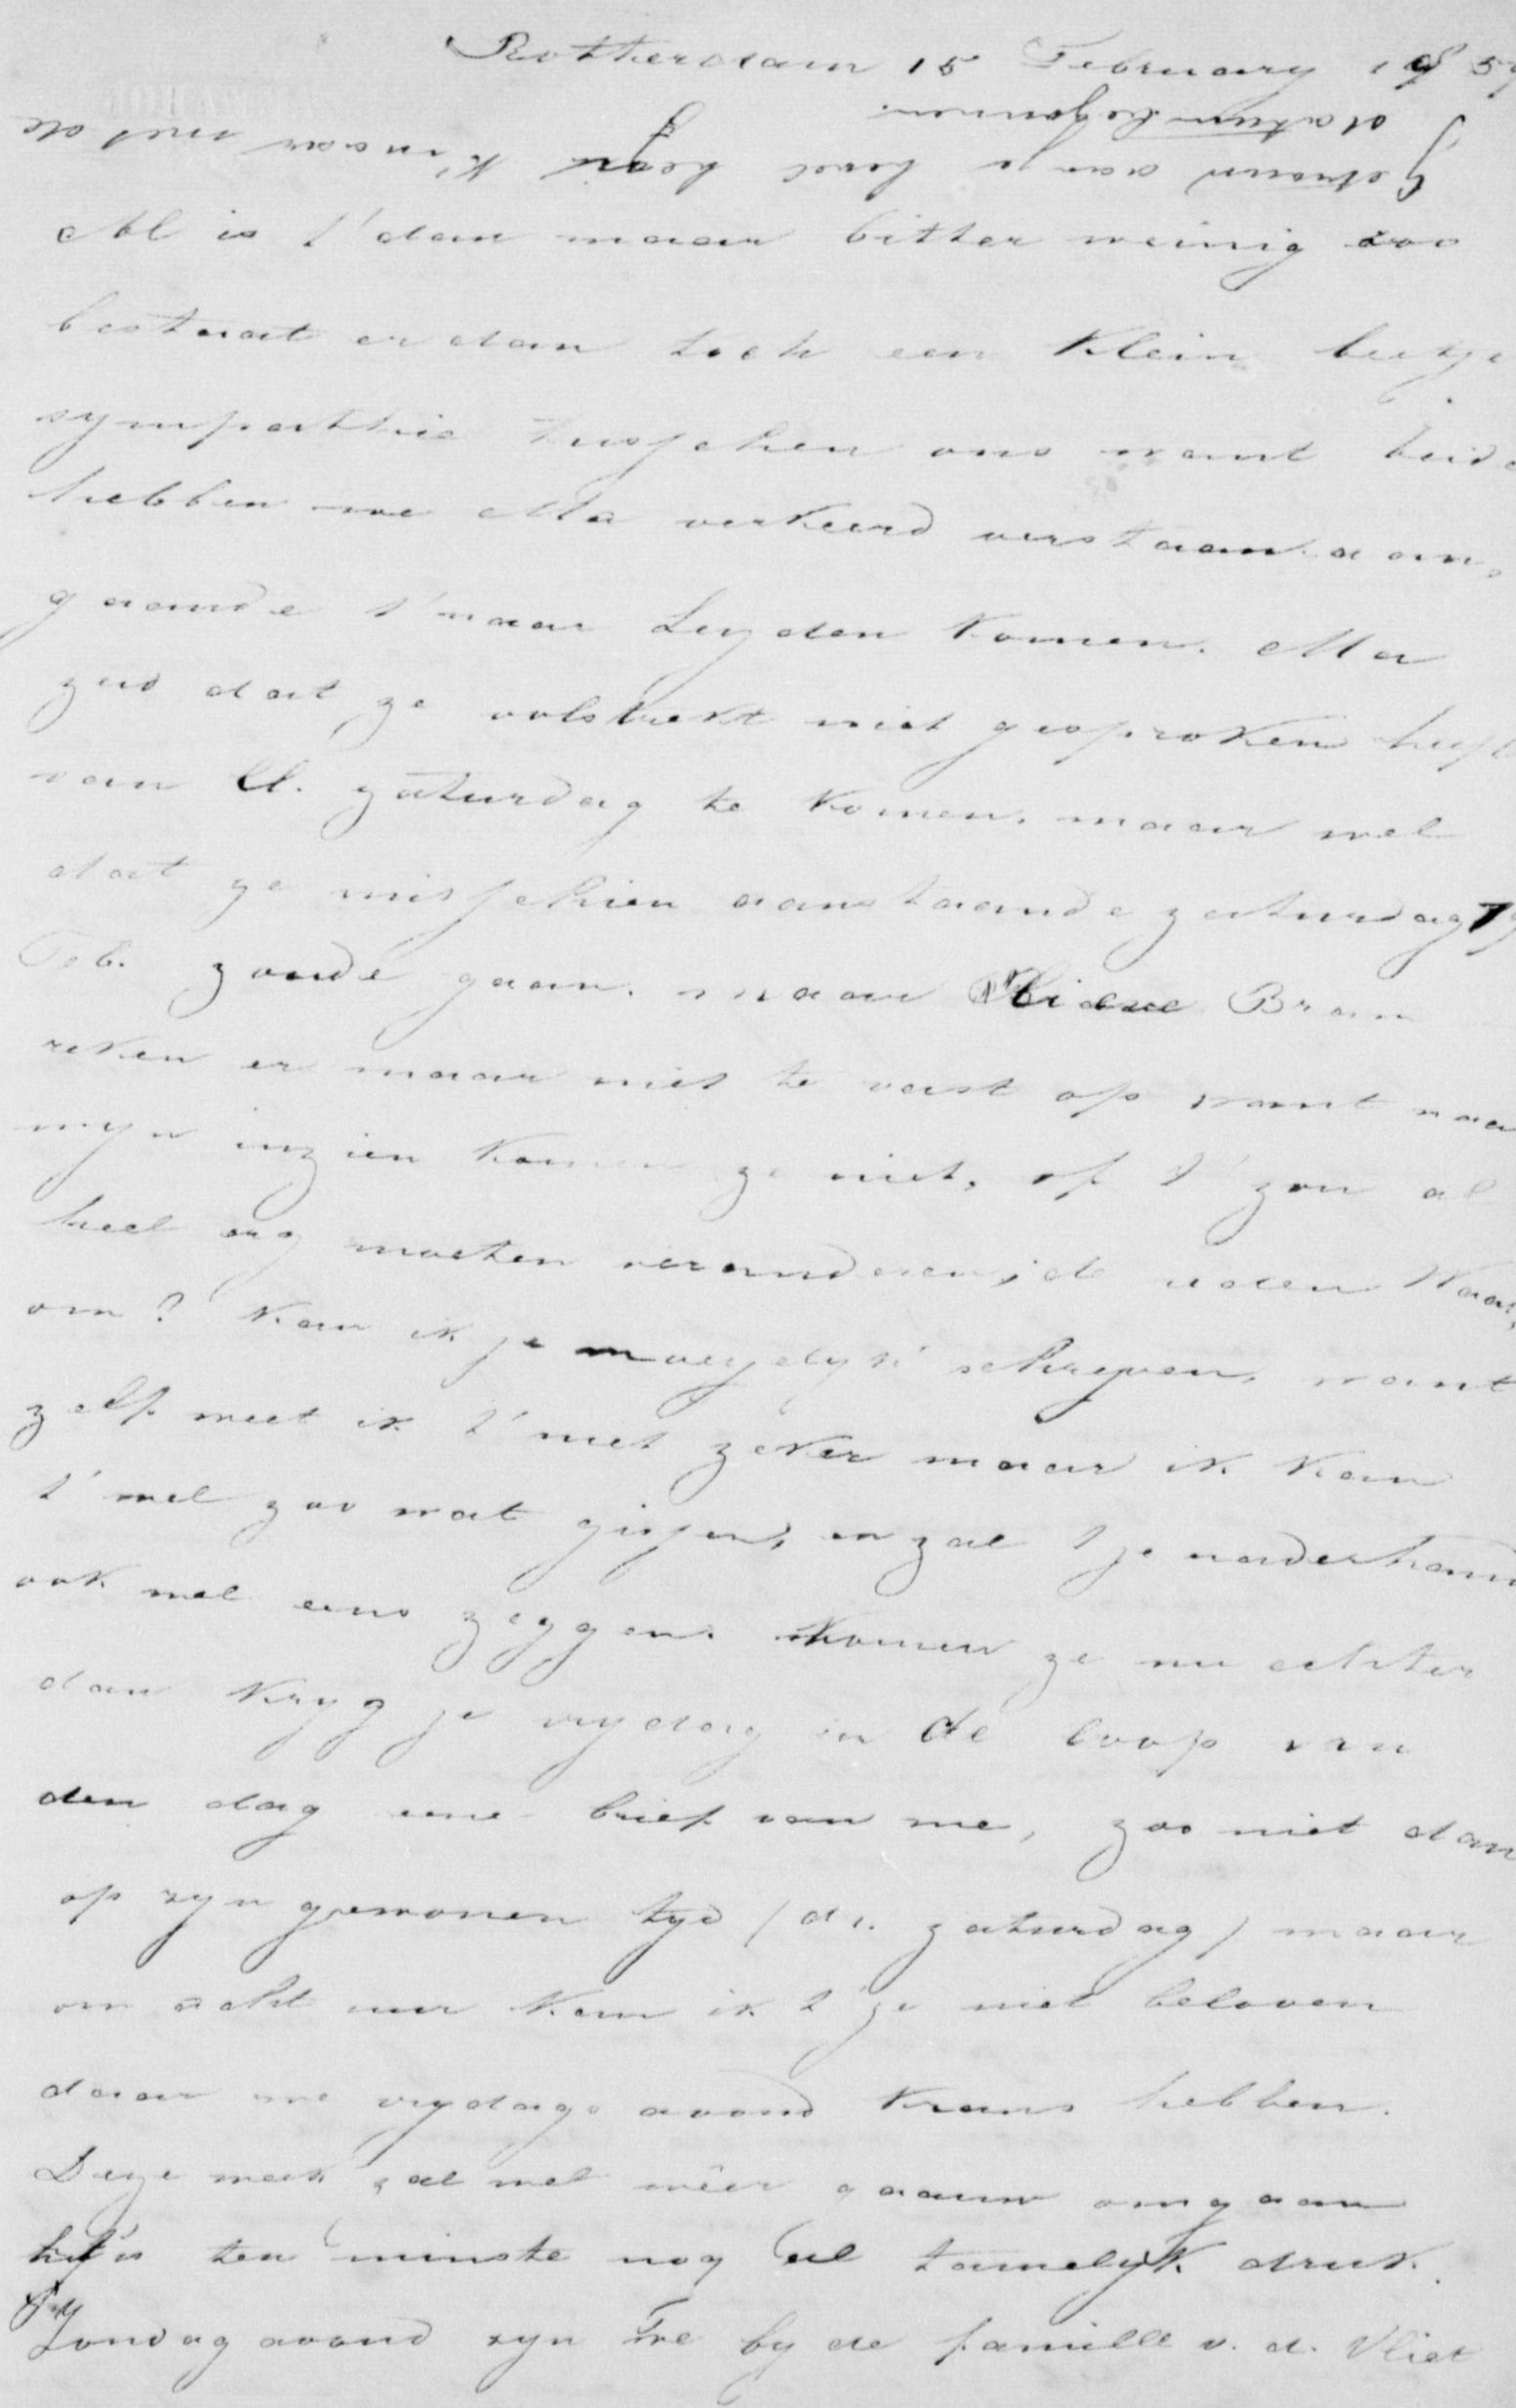 Rotterdam 15 February 1859
Getrouw aan je bevel begin k' maar met de
datum begonnen.
Al is t' dan maar bitter weinig zoo
bestaat er dan toch een klein beetje
sympathie tusschen ons want beide
hebben we Ma verkeerd verstaan aan,
gaande t' naar Leyden komen. Ma
zeid dat ze volstrekt niet gesproken heeft
van ll. zaturdag te komen. maar wel
dat ze misschien aanstaande zaturdag 19
Feb. zoude gaan. maar Bram
reken er maar niet te vast op want naar
myn inzien komen ze niet, of t' zou al
heel erg moeten veranderen, de reden Waar,
om? kan ik je moeyelyk schryven, want
zelf weet ik t' niet zeker maar ik kan
t' wel zoo wat gissen, en zal t je naderhand
ook wel eens zeggen. Komen ze nu echter
dan kryg je vrydag in de loop van
den dag eene brief van me, zoo niet dan
op zyn gewonen tyd (d.i. zaturdag) maar
om acht uur kan ik t' je niet beloven
daar we vrydags avond krans hebben.
Deze week zal wel wêer gaauw omgaan
het is ten minste nog al tamelyk druk.
Zondag avond zyn we by de famille v. d. Vliet